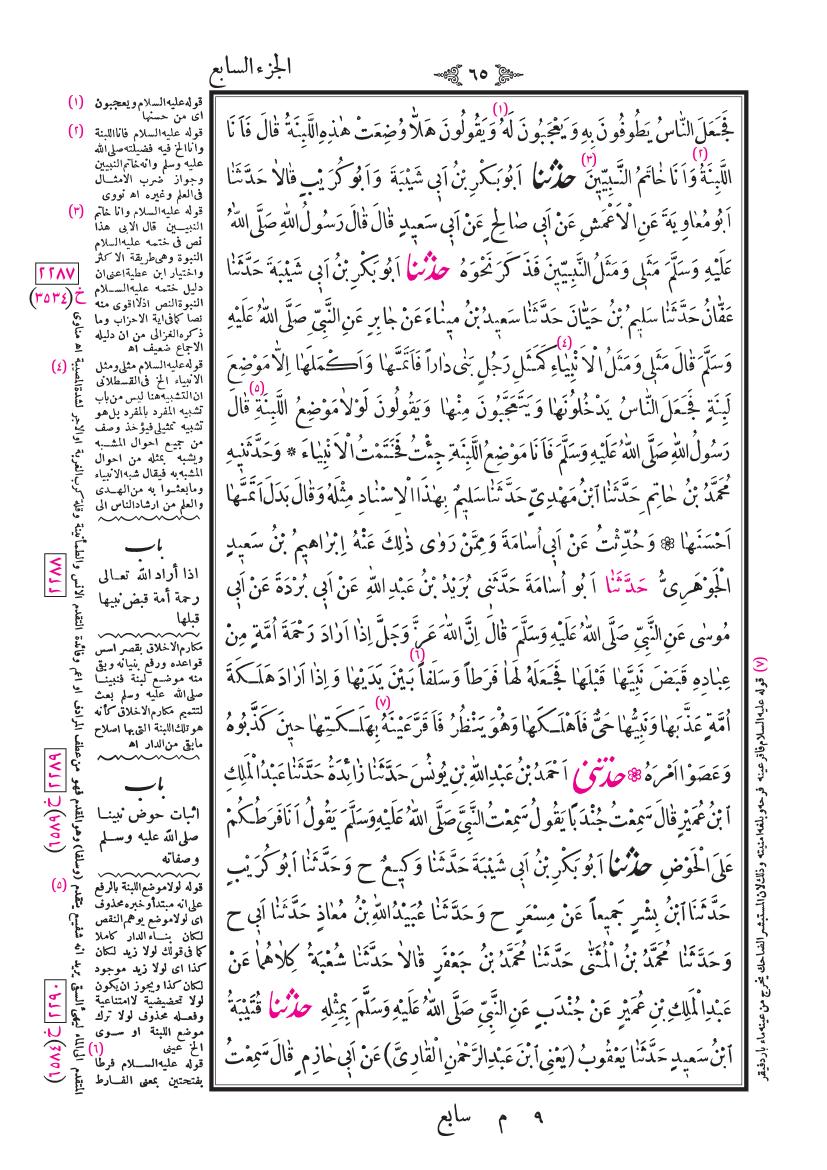 الجزء السابع
٦٥
فَجَعَلَ النَّاسُ يَطُوفُونَ بِهِ وَيَعْجَبُونَ لَهُ (١) وَيَقُولُونَ هَلَّا وُضِعَتْ هٰذِهِ اللَّبِنَةُ قَالَ فَأَنَا
اللَّبِنَةُ (٢) وَأَنَا خَاتَمُ النَّبِيِّينَ (٣) حَدَّثَنَا أَبُو بَكْرِ بْنُ أَبِي شَيْبَةَ وَأَبُو كُرَيْبٍ قَالَا حَدَّثَنَا
أَبُو مُعَاوِيَةَ عَنِ الْأَعْمَشِ عَنْ أَبِي صَالِحٍ عَنْ أَبِي سَعِيدٍ قَالَ قَالَ رَسُولُ اللهِ صَلَّى اللهُ
عَلَيْهِ وَسَلَّمَ مَثَلِي وَمَثَلُ النَّبِيِّينَ فَذَكَرَ نَحْوَهُ حَدَّثَنَا أَبُو بَكْرِ بْنُ أَبِي شَيْبَةَ حَدَّثَنَا
عَفَّانُ حَدَّثَنَا سَلِيمُ بْنُ حَيَّانَ حَدَّثَنَا سَعِيدُ بْنُ مِينَاءَ عَنْ جَابِرٍ عَنِ النَّبِيِّ صَلَّى اللهُ عَلَيْهِ
وَسَلَّمَ قَالَ مَثَلِي وَمَثَلُ الْأَنْبِيَاءِ (٤) كَمَثَلِ رَجُلٍ بَنَى دَاراً فَأَتَمَّهَا وَأَكْمَلَهَا إِلَّا مَوْضِعَ
لَبِنَةٍ فَجَعَلَ النَّاسُ يَدْخُلُونَهَا وَيَتَعَجَّبُونَ مِنْهَا وَيَقُولُونَ لَوْلَا مَوْضِعُ اللَّبِنَةِ (٥) قَالَ
رَسُولُ اللهِ صَلَّى اللهُ عَلَيْهِ وَسَلَّمَ فَأَنَا مَوْضِعُ اللَّبِنَةِ جِئْتُ فَخَتَمْتُ الْأَنْبِيَاءَ * وَحَدَّثَنِيهِ
مُحَمَّدُ بْنُ حَاتِمٍ حَدَّثَنَا ابْنُ مَهْدِيٍّ حَدَّثَنَا سَلِيمٌ بِهٰذَا الْإِسْنَادِ مِثْلَهُ وَقَالَ بَدَلَ أَتَمَّهَا
أَحْسَنَهَا * وَحُدِّثْتُ عَنْ أَبِي أُسَامَةَ وَمِمَّنْ رَوَى ذٰلِكَ عَنْهُ إِبْرَاهِيمُ بْنُ سَعِيدٍ
الْجَوْهَرِيُّ حَدَّثَنَا أَبُو أُسَامَةَ حَدَّثَنِي بُرَيْدُ بْنُ عَبْدِ اللهِ عَنْ أَبِي بُرْدَةَ عَنْ أَبِي
مُوسَى عَنِ النَّبِيِّ صَلَّى اللهُ عَلَيْهِ وَسَلَّمَ قَالَ إِنَّ اللهَ عَزَّ وَجَلَّ إِذَا أَرَادَ رَحْمَةَ أُمَّةٍ مِنْ
عِبَادِهِ قَبَضَ نَبِيَّهَا قَبْلَهَا فَجَعَلَهُ لَهَا فَرَطاً وَسَلَفاً (٦) بَيْنَ يَدَيْهَا وَإِذَا أَرَادَ هَلَكَةَ
أُمَّةٍ عَذَّبَهَا وَنَبِيُّهَا حَيٌّ فَأَهْلَكَهَا وَهُوَ يَنْظُرُ فَأَقَرَّ عَيْنَهُ (٧) بِهَلَكَتِهَا حِينَ كَذَّبُوهُ
وَعَصَوْا أَمْرَهُ * حَدَّثَنِي أَحْمَدُ بْنُ عَبْدِ اللهِ بْنِ يُونُسَ حَدَّثَنَا زَائِدَةُ حَدَّثَنَا عَبْدُ الْمَلِكِ
ابْنُ عُمَيْرٍ قَالَ سَمِعْتُ جُنْدَبًا يَقُولُ سَمِعْتُ النَّبِيَّ صَلَّى اللهُ عَلَيْهِ وَسَلَّمَ يَقُولُ أَنَا فَرَطُكُمْ
عَلَى الْحَوْضِ حَدَّثَنَا أَبُو بَكْرِ بْنُ أَبِي شَيْبَةَ حَدَّثَنَا وَكِيعٌ ح وَحَدَّثَنَا أَبُو كُرَيْبٍ
حَدَّثَنَا ابْنُ بِشْرٍ جَمِيعاً عَنْ مِسْعَرٍ ح وَحَدَّثَنَا عُبَيْدُ اللهِ بْنُ مُعَاذٍ حَدَّثَنَا أَبِي ح
وَحَدَّثَنَا مُحَمَّدُ بْنُ الْمُثَنَّى حَدَّثَنَا مُحَمَّدُ بْنُ جَعْفَرٍ قَالَا حَدَّثَنَا شُعْبَةُ كِلَاهُمَا عَنْ
عَبْدِ الْمَلِكِ بْنِ عُمَيْرٍ عَنْ جُنْدَبٍ عَنِ النَّبِيِّ صَلَّى اللهُ عَلَيْهِ وَسَلَّمَ بِمِثْلِهِ حَدَّثَنَا قُتَيْبَةُ
ابْنُ سَعِيدٍ حَدَّثَنَا يَعْقُوبُ (يَعْنِي ابْنَ عَبْدِ الرَّحْمٰنِ الْقَارِيَّ) عَنْ أَبِي حَازِمٍ قَالَ سَمِعْتُ
(١) قوله عليه السلام ويعجبون
اى من حسنها
(٢) قوله عليه السلام فانا اللبنة
وانا الخ فيه فضيلته صلى الله
عليه وسلم وانه خاتم النبيين
وجواز ضرب الامثال
فى العلم وغيره اه نووى
(٣) قوله عليه السلام وانا خاتم
النبيين قال الابى هذا
نص فى ختمه عليه السلام
النبوة وهى طريقة الاكثر
واختيار ابن عطية اعنى ان
دليل ختمه عليه السلام
النبوة النص اذلا اقوى منه
نصا كما فى اية الاحزاب وما
ذكره الغزالى من ان دليله
الاجماع ضعيف اه
(٤) قوله عليه السلام مثلى ومثل
الانبياء الخ فى القسطلانى
ان التشبيه هنا ليس من باب
تشبيه المفرد بالمفرد بل هو
تشبيه تمثيلى فيؤخذ وصف
من جميع احوال المشبه
ويشبه بمثله من احوال
المشبه به فيقال شبه الانبياء
وما بعثوا به من الهدى
والعلم من ارشاد الناس الى
باب
اذا أراد الله تعالى
رحمة أمة قبض نبيها
قبلها
مكارم الاخلاق بقصر اسس
قواعده ورفع بنيانه وبقى
منه موضع لبنة فنبينا
صلى الله عليه وسلم بعث
لتتميم مكارم الاخلاق كأنه
هو تلك اللبنة التى بها اصلاح
ما بقى من الدار اه
باب
اثبات حوض نبينا
صلى الله عليه وسلم
وصفاته
(٥) قوله لولا موضع اللبنة بالرفع
على انه مبتدأ وخبره محذوف
اى لولا موضع يوهم النقص
لكان بناء الدار كاملا
كما فى قولك لولا زيد لكان
كذا اى لولا زيد موجود
لكان كذا ويجوز ان يكون
لولا تحضيضية لا امتناعية
وفعله محذوف لولا ترك
موضع اللبنة او سوى
الخ عينى
(٦) قوله عليه السلام فرطا
بفتحتين بمعنى الفارط
المتقدم الى الماء ليهيئ السقى يريد انه شفيع يتقدم (وسلفا) وهو المقدم فهو من عطف المرادف او اعم وفائدة التقدم الانس والطمأنينة وقلة كرب الغربة او الاجر لشدة المصيبة اه مناوى
(٧) قوله عليه السلام فاقر عينه فرحه وبلغه امنيته وذلك لان المستبشر الضاحك يخرج من عينه ماء بارد فيقر
٢٢٨٧
خ (٣٥٣٤)
٢٢٨٨
٢٢٨٩
خ (٦٥٨٩)
٢٢٩٠
خ (٦٥٨٤)
٩ م سابع